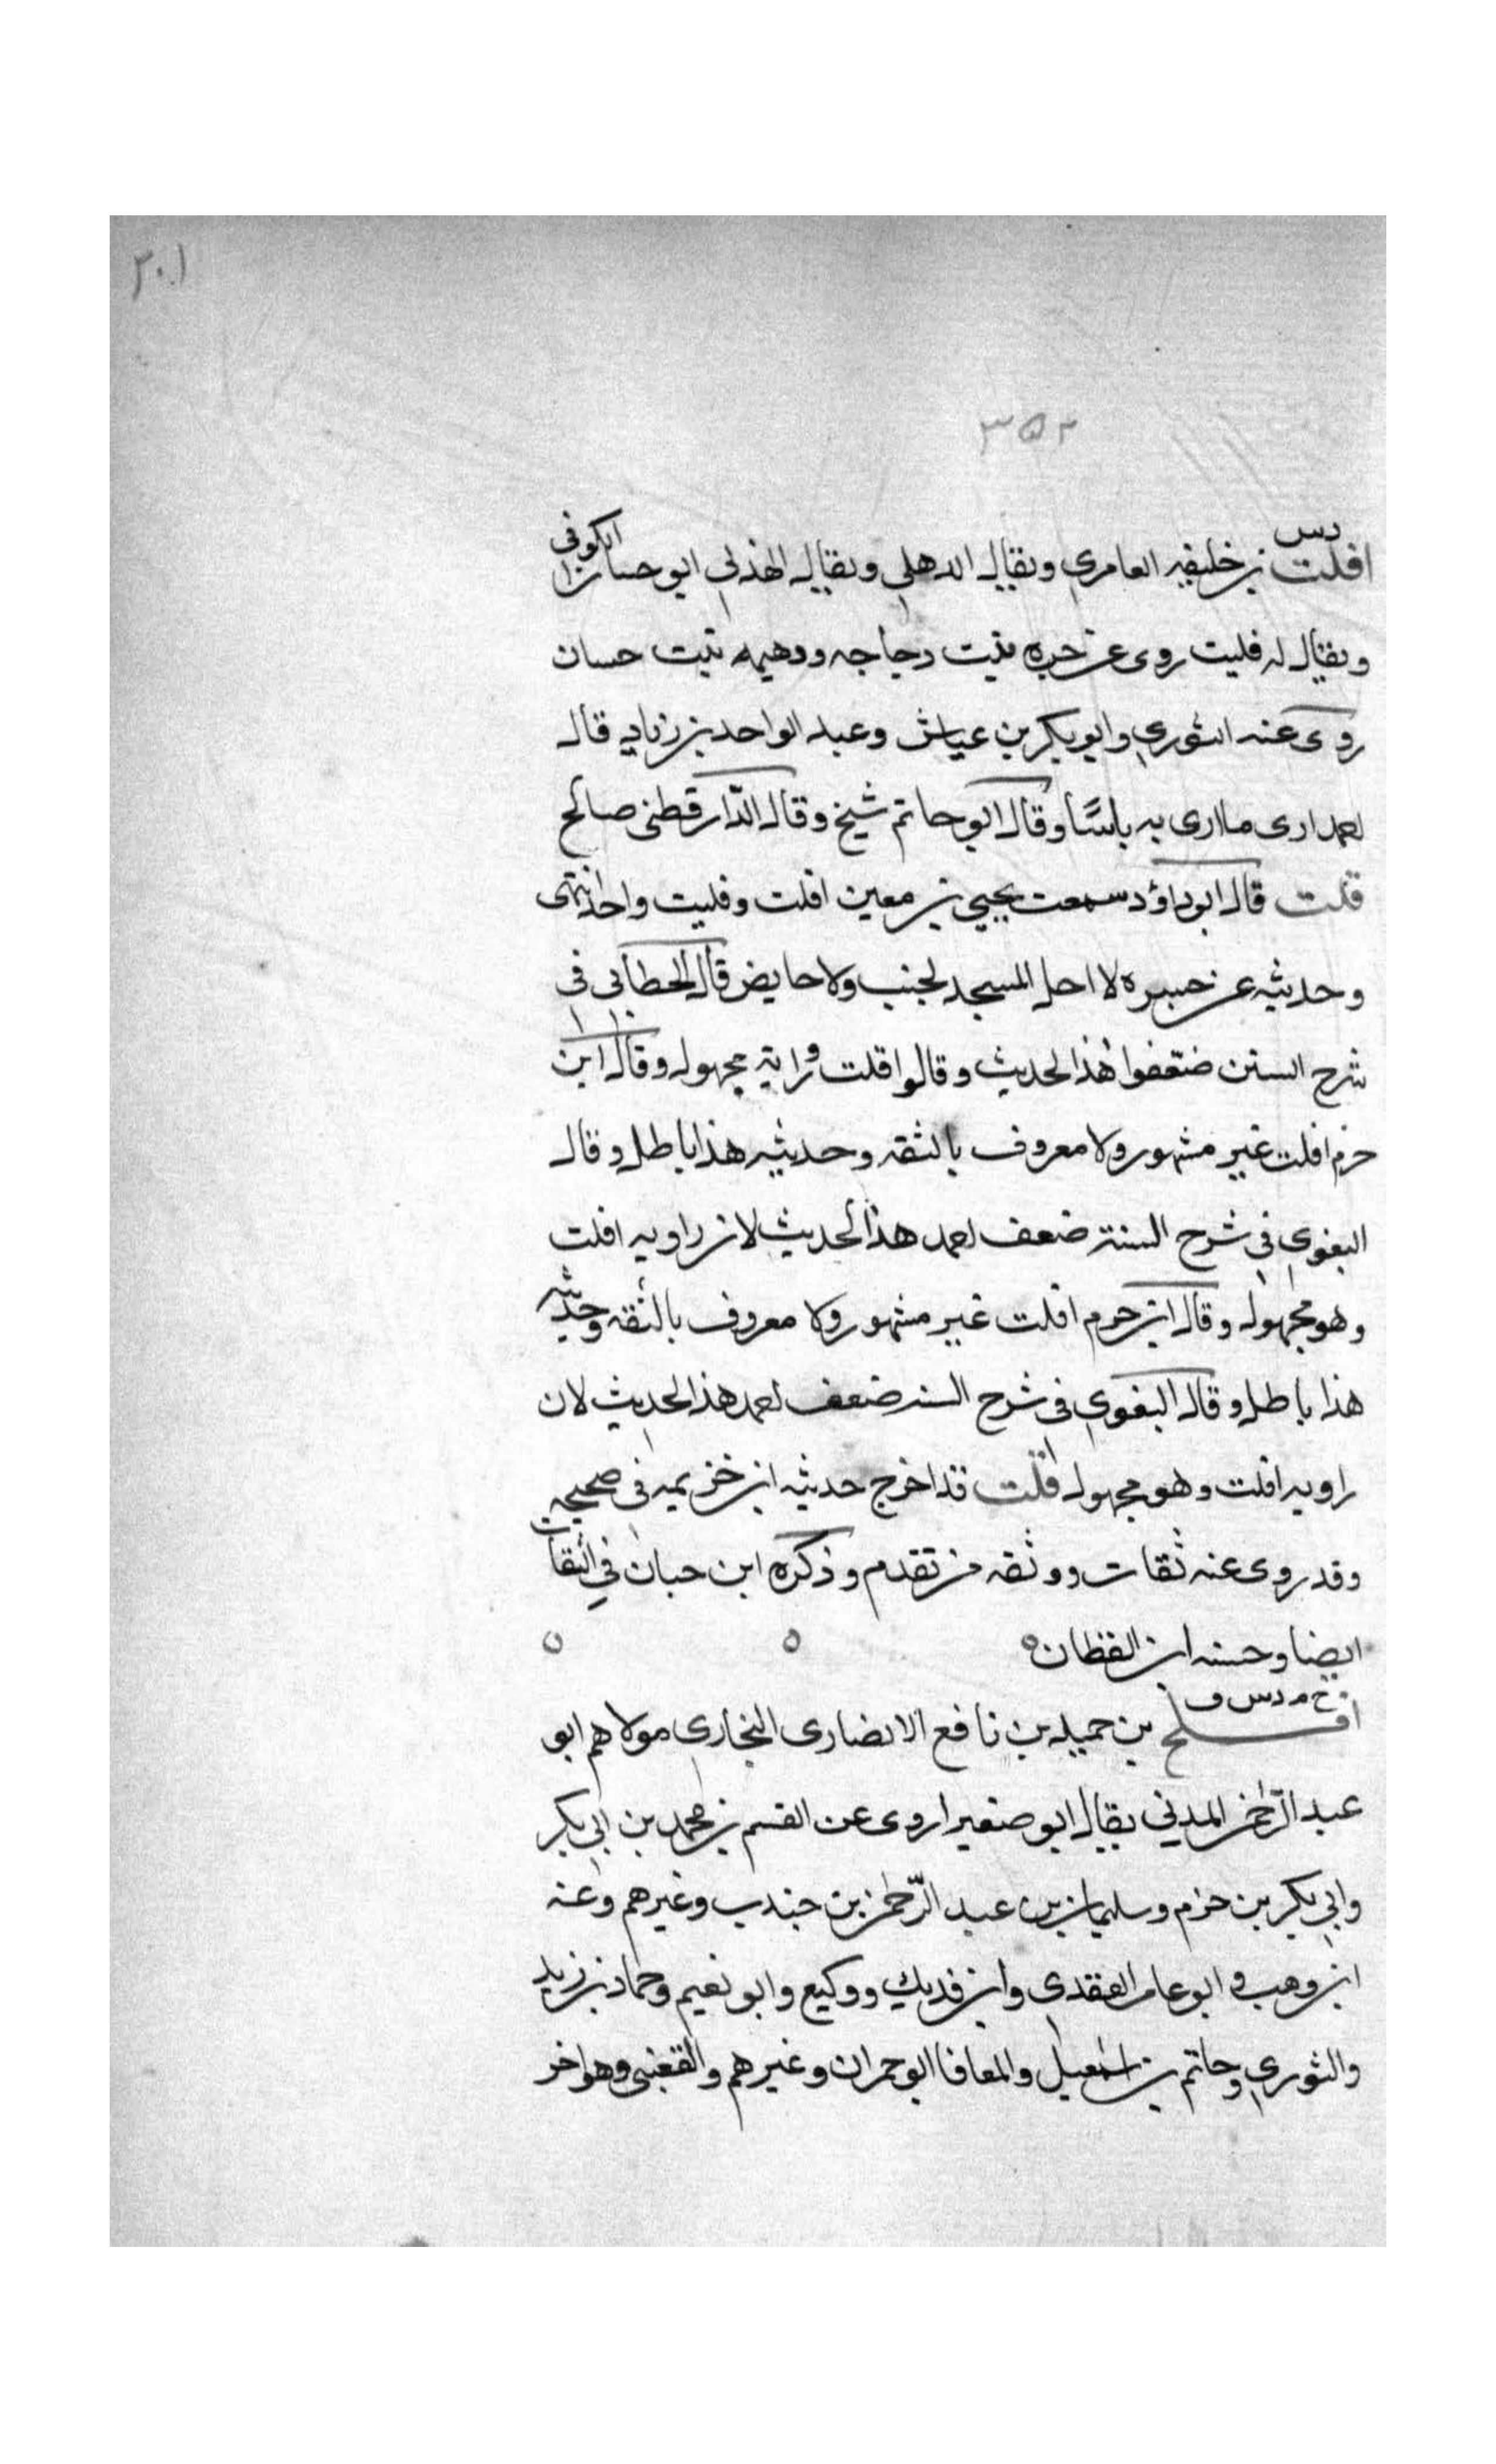 ٣٠١
٣٥٢
دس
افلت بن خليفه العامري ويقال الدهلي ويقال الهذلي ابو حسان الكوفي
ويقال له فليت روى عن جسره بنت دجاجه ودهيمه بنت حسان
روى عنه الثوري وابو بكر بن عياش وعبد الواحد بن زياد قال
احمد ارى ما ارى به باسًا وقال ابو حاتم شيخ وقال الدّارقطنى صالح
قلت قال ابو داؤد سمعت يحيي بن معين افلت وفليت واحد انتهى
وحديثه عن جسره لا احل المسجد لجنب ولا حايض قال الخطابى فى
شرح السنن ضعفوا هذا الحديث وقالوا افلت راويه مجهول وقال ابن
حزم افلت غير مشهور ولا معروف بالثقه وحديثه هذا باطل وقال
البغوي فى شرح السنة ضعف احمد هذا الحديث لان راويه افلت
وهو مجهول وقال ابن حزم افلت غير مشهور ولا معروف بالثقه وحديثه
هذا باطل وقال البغوي فى شرح السنه ضعف احمد هذا الحديث لان
راويه افلت وهو مجهول قلت قد اخرج حديثه ابن خزيمه فى صحيحه
وقد روى عنه ثقات ووثقه من تقدم وذكره ابن حبان في الثقات
ايضا وحسنه ابن القطان ه ه ه
خ م د س ق
افلح بن حميد بن نافع الانصارى النجاري مولاهم ابو
عبد الرّحمن المدني يقال ابو صفيرا روى عن القسم بن محمد بن ابي بكر
وابي بكر بن حزم وسليمان بن عبد الرّحمن بن جندب وغيرهم وعنه
ابن وهب وابو عامر العقدى وابن فديك ووكيع وابو نعيم وحماد بن زيد
والثوري وحاتم بن اسمعيل والمعافا ابو حمران وغيرهم والقعنبى وهو اخر